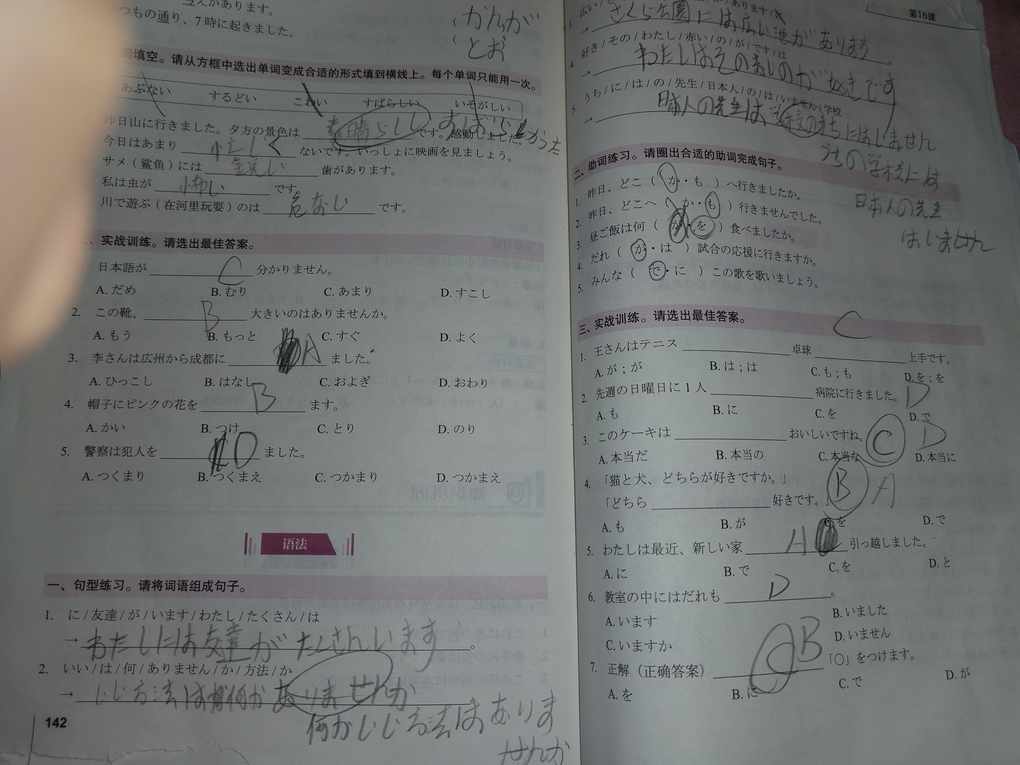 つもの通り、7時に起きました。
かんが
とお
填空。请从方框中选出单词变成合适的形式填到横线上。每个单词只能用一次。
あぶない するどい こわい すばらしい いそがしい
昨日山に行きました。夕方の景色は 素晴らし です。感動しました。
今日はあまり 忙しく ないです。いっしょに映画を見ましょう。
サメ（鲨鱼）には 歯があります。
私は虫が 怖い です。
川で遊ぶ（在河里玩耍）のは 危ない です。
实战训练。请选出最佳答案。
日本語が C 分かりません。
A. だめ B. むり C. あまり D. すこし
2. この靴、 B 大きいのはありませんか。
A. もう B. もっと C. すぐ D. よく
3. 李さんは広州から成都に A ました。
A. ひっこし B. はなし C. およぎ D. おわり
4. 帽子にピンクの花を B ます。
A. かい B. つけ C. とり D. のり
5. 警察は犯人を D ました。
A. つくまり B. つくまえ C. つかまり D. つかまえ
语法
一、句型练习。请将词语组成句子。
1. に / 友達 / が / います / わたし / たくさん / は
→ わたしには友達がたくさんいます 。
2. いい / は / 何 / ありません / か / 方法 / か
→ いい方法は何かありませんか
何かいい方法はありま
せんか
142
第16课
→ さくら公園には広い池があります
好き / その / わたし / 赤い / の / が / です / は
→ わたしはその赤いのが好きです
5. うち / に / は / の / 先生 / 日本人 / の / は / いません / 学校
うちの学校には
日本人の先生
はいません
二、助词练习。请圈出合适的助词完成句子。
1. 昨日、どこ（ か・も ）へ行きましたか。
2. 昨日、どこへ（ か・も ）行きませんでした。
3. 昼ご飯は何（ が・を ）食べましたか。
4. だれ（ が・は ）試合の応援に行きますか。
5. みんな（ で・に ）この歌を歌いましょう。
三、实战训练。请选出最佳答案。
1. 王さんはテニス 卓球 C 上手です。
A. が ; が B. は ; は C. も ; も D. を ; を
2. 先週の日曜日に1人 病院に行きました。 D
A. も B. に C. を D. で
3. このケーキは おいしいですね。 C D
A. 本当だ B. 本当の C. 本当な D. 本当に
4. 「猫と犬、どちらが好きですか。」
「どちら 好きです。」 B A
A. も B. が C. を D. で
5. わたしは最近、新しい家 A 引っ越しました。
A. に B. で C. を D. と
6. 教室の中にはだれも D 。
A. います B. いました
C. いますか D. いません
7. 正解（正确答案） B 「○」をつけます。
A. を B. に C. で D. が